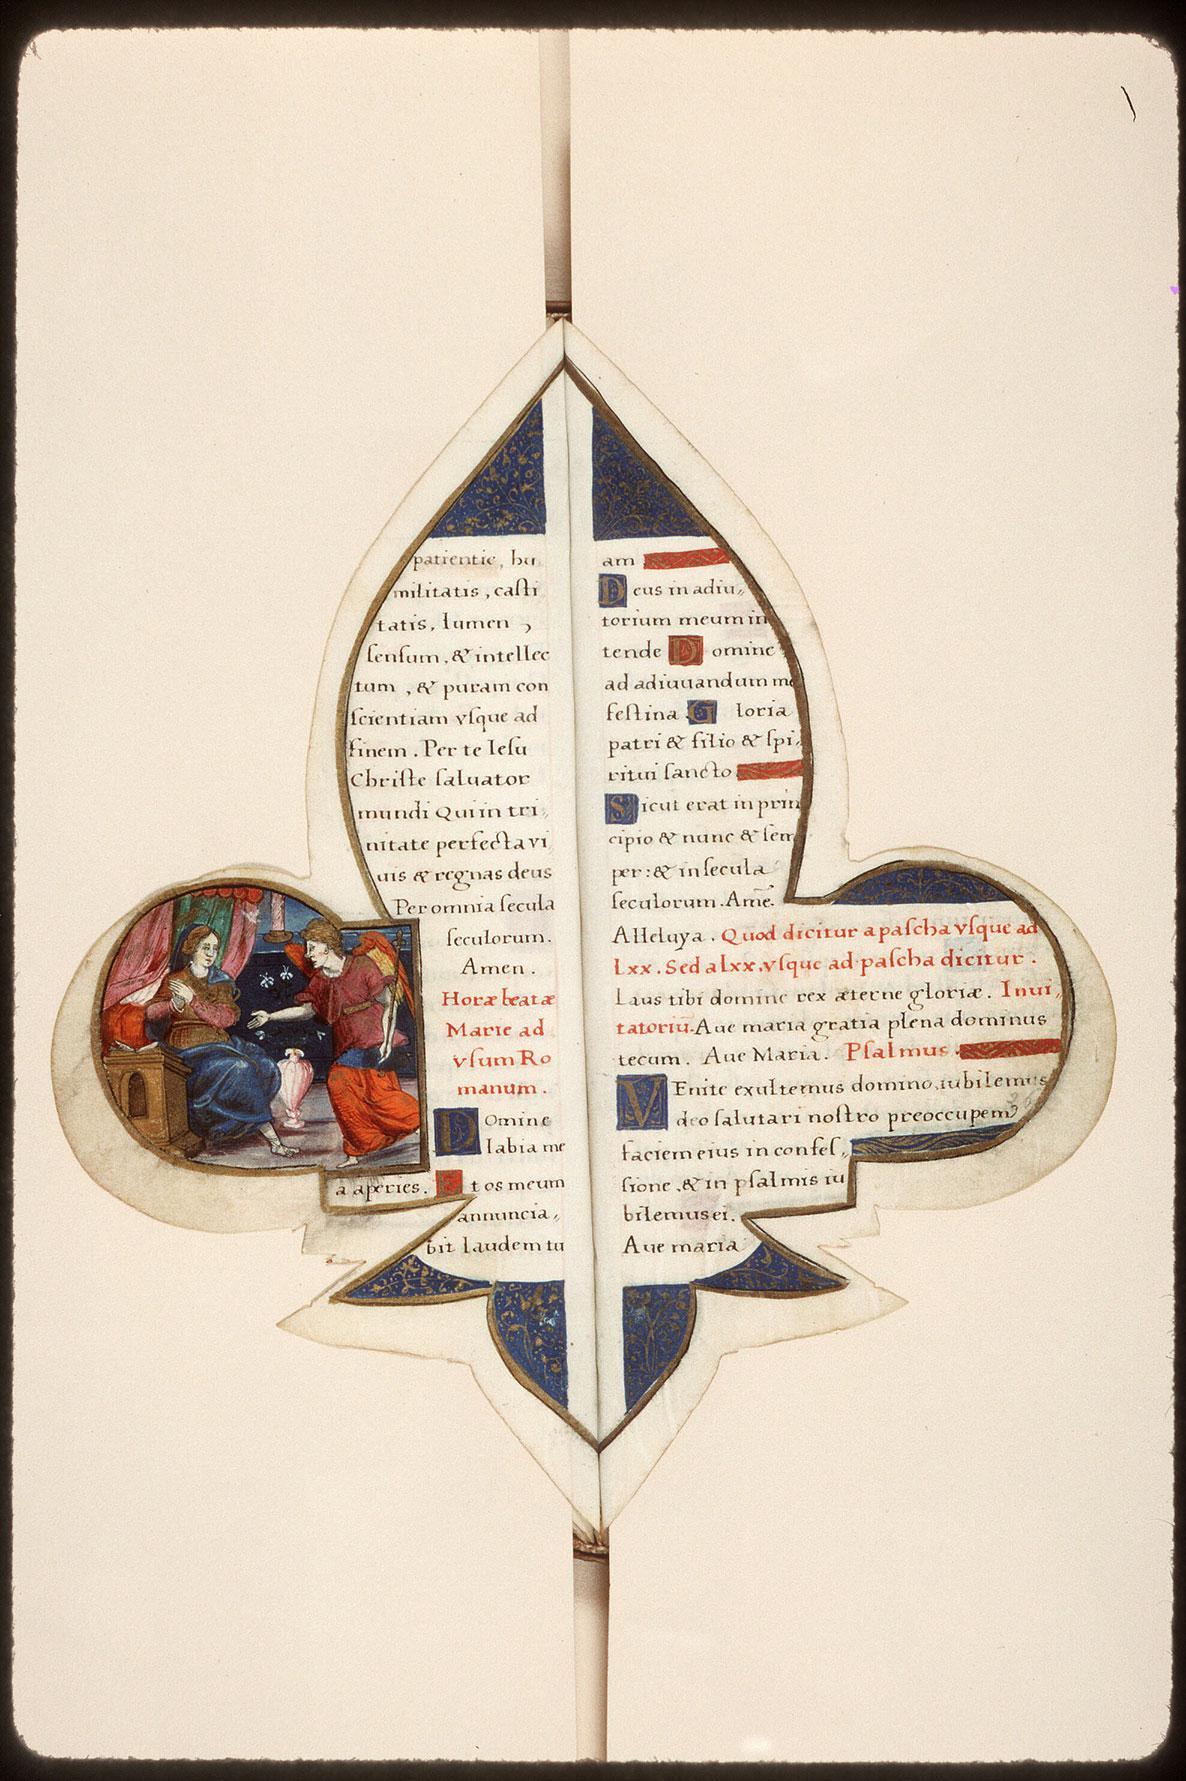 patientie, hu
militatis, caſti
tatis, lumen ,
ſenſum, & intellec
tum, & puram con
ſcientiam vſque ad
finem. Per te Ieſu
Chriſte ſaluator
mundi Qui in tri,,
nitate perfecta vi
uis & regnas deus
Per omnia ſecula
ſeculorum.
Amen.
Horæ beatæ
Marie ad
vſum Ro
manum.
Domine
labia me
a aperies. Et os meum
annuncia,,
bit laudem tu
am
Deus in adiu,,
torium meum in
tende Domine
ad adiuuandum me
feſtina. Gloria
patri & filio & ſpi,,
ritui ſancto
Sicut erat in prin
cipio & nunc & ſem
per: & in ſecula
ſeculorum. Amē.
Alleluya. Quod dicitur a paſcha vſque ad
Lxx. Sed a Lxx. vſque ad paſcha dicitur.
Laus tibi domine rex æterne gloriæ. Inui,,
tatoriū. Aue maria gratia plena dominus
tecum. Aue Maria. Pſalmus.
VEnite exultemus domino, iubilemus
deo ſalutari noſtro preoccupem⁹
faciem eius in confeſ,,
ſione, & in pſalmis iu
bilemus ei.
Aue maria